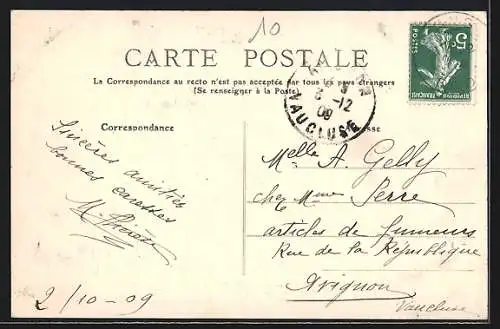 10
CARTE POSTALE
La Correspondance au recto n'est pas acceptée par tous les pays étrangers
(Se renseigner à la Poste)
5c
POSTES
REPUBLIQUE FRANÇAISE
12
09
VAUCLUSE
Correspondance
Sincères amitiés
bonnes caresses
2/10-09
Melle A. Gelly
chez Mme Serre
articles de fumeurs
Rue de la République
Avignon
Vaucluse